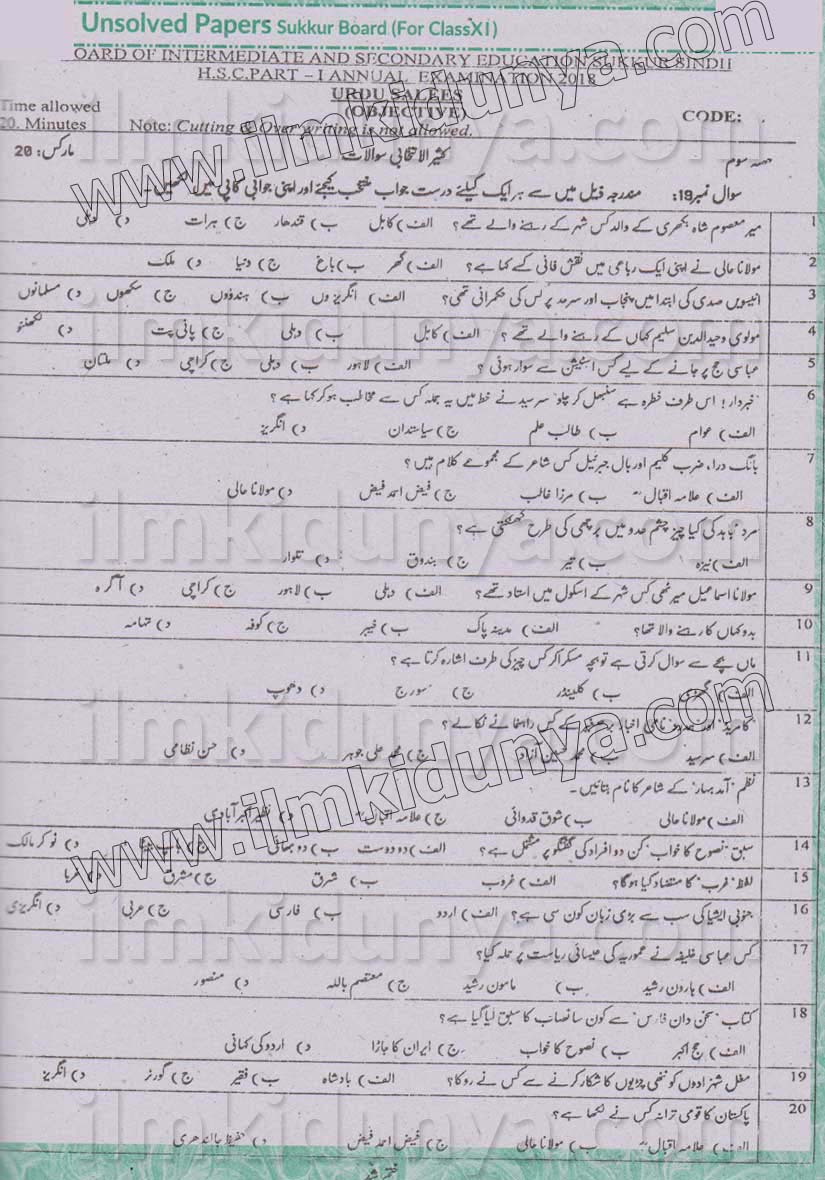 Unsolved Papers Sukkur Board (For ClassXI)
OARD OF INTERMEDIATE AND SECONDARY EDUCATION SUKKUR SINDH
H.S.C.PART – I ANNUAL EXAMINATION 2018
URDU SALEES
(OBJECTIVE)
Time allowed
20. Minutes
CODE:
Note: Cutting & Over writing is not allowed.
حصہ سوم کثیر الانتخابی سوالات مارکس: 20
سوال نمبر19: مندرجہ ذیل میں سے ہر ایک کیلئے درست جواب منتخب کیجئے اور اپنی جوابی کاپی میں لکھیں۔
1 میر معصوم شاہ بکھری کے والد کس شہر کے رہنے والے تھے؟ الف) کابل ب) قندھار ج) ہرات د)
2 مولانا حالی نے اپنی ایک رباعی میں نقش فانی کسے کہا ہے؟ الف) گھر ب) باغ ج) دنیا د) ملک
3 انیسویں صدی کی ابتدا میں پنجاب اور سرحد پر کس کی حکمرانی تھی؟ الف) انگریزوں ب) ہندوؤں ج) سکھوں د) مسلمانوں
4 مولوی وحیدالدین سلیم کہاں کے رہنے والے تھے؟ الف) کابل ب) دہلی ج) پانی پت د) لکھنئو
5 عباسی حج پر جانے کے لیے کس اسٹیشن سے سوار ہوئی؟ الف) لاہور ب) دہلی ج) کراچی د) ملتان
6 'خبردار! اس طرف خطرہ ہے سنبھل کر چلو' سرسید نے خط میں یہ جملہ کس سے مخاطب ہو کر کہا ہے؟
الف) عوام ب) طالب علم ج) سیاستدان د) انگریز
7 بانگ درا، ضرب کلیم اور بال جبرئیل کس شاعر کے مجموعے کلام ہیں؟
الف) علامہ اقبال ب) مرزا غالب ج) فیض احمد فیض د) مولانا حالی
8 مرد مجاہد کی کیا چیز چشم عدو میں برچھی کی طرح کھٹکتی ہے؟
الف) نیزہ ب) تیر ج) بندوق د) تلوار
9 مولانا اسماعیل میرٹھی کس شہر کے اسکول میں استاد تھے؟ الف) دہلی ب) لاہور ج) کراچی د) آگرہ
10 بدو کہاں کا رہنے والا تھا؟ الف) مدینہ پاک ب) خیبر ج) کوفہ د) تہامہ
11 ماں بچے سے سوال کرتی ہے تو بچہ مسکرا کر کس چیز کی طرف اشارہ کرتا ہے؟
الف) گھڑی ب) کلینڈر ج) سورج د) دھوپ
12 'کامریڈ' اور ہمدرد نامی اخبار کے کس راہنما نے نکالے؟
الف) سرسید ب) محمد حسین آزاد ج) محمد علی جوہر د) حسن نظامی
13 نظم 'آمد بہار' کے شاعر کا نام بتائیں۔
الف) مولانا حالی ب) شوق قدوائی ج) علامہ اقبال د) نظیر اکبرآبادی
14 سبق 'نصوح کا خواب' کن دو افراد کی گفتگو پر مشتمل ہے؟ الف) دو دوست ب) دو بھائی ج) باپ د) نوکر مالک
15 لفظ 'غرب' کا متضاد کیا ہوگا؟ الف) غروب ب) شرق ج) مشرق د)
16 جنوبی ایشیا کی سب سے بڑی زبان کون سی ہے؟ الف) اردو ب) فارسی ج) عربی د) انگریزی
17 کس عباسی خلیفہ نے عموریہ کی عیسائی ریاست پر حملہ کیا؟
الف) ہارون رشید ب) مامون رشید ج) معتصم باللہ د) منصور
18 کتاب 'سخن دان فارس' سے کون سا نصاب کا سبق لیا گیا ہے؟
الف) حج اکبر ب) نصوح کا خواب ج) ایران کا جاڑا د) اردو کی کہانی
19 مغل شہزادوں کو ننھی چڑیوں کا شکار کرنے سے کس نے روکا؟ الف) بادشاہ ب) فقیر ج) گورنر د) انگریز
20 پاکستان کا قومی ترانہ کس نے لکھا ہے؟
الف) علامہ اقبال ب) مولانا حالی ج) فیض احمد فیض د) حفیظ جالندھری
ختم شد
www.ilmkidunya.com
www.ilmkidunya.com
ilmkidunya.com
ilmkidunya.com
ilmkidunya.com
ilmkidunya.com
ilmkidunya.com
ilmkidunya.com